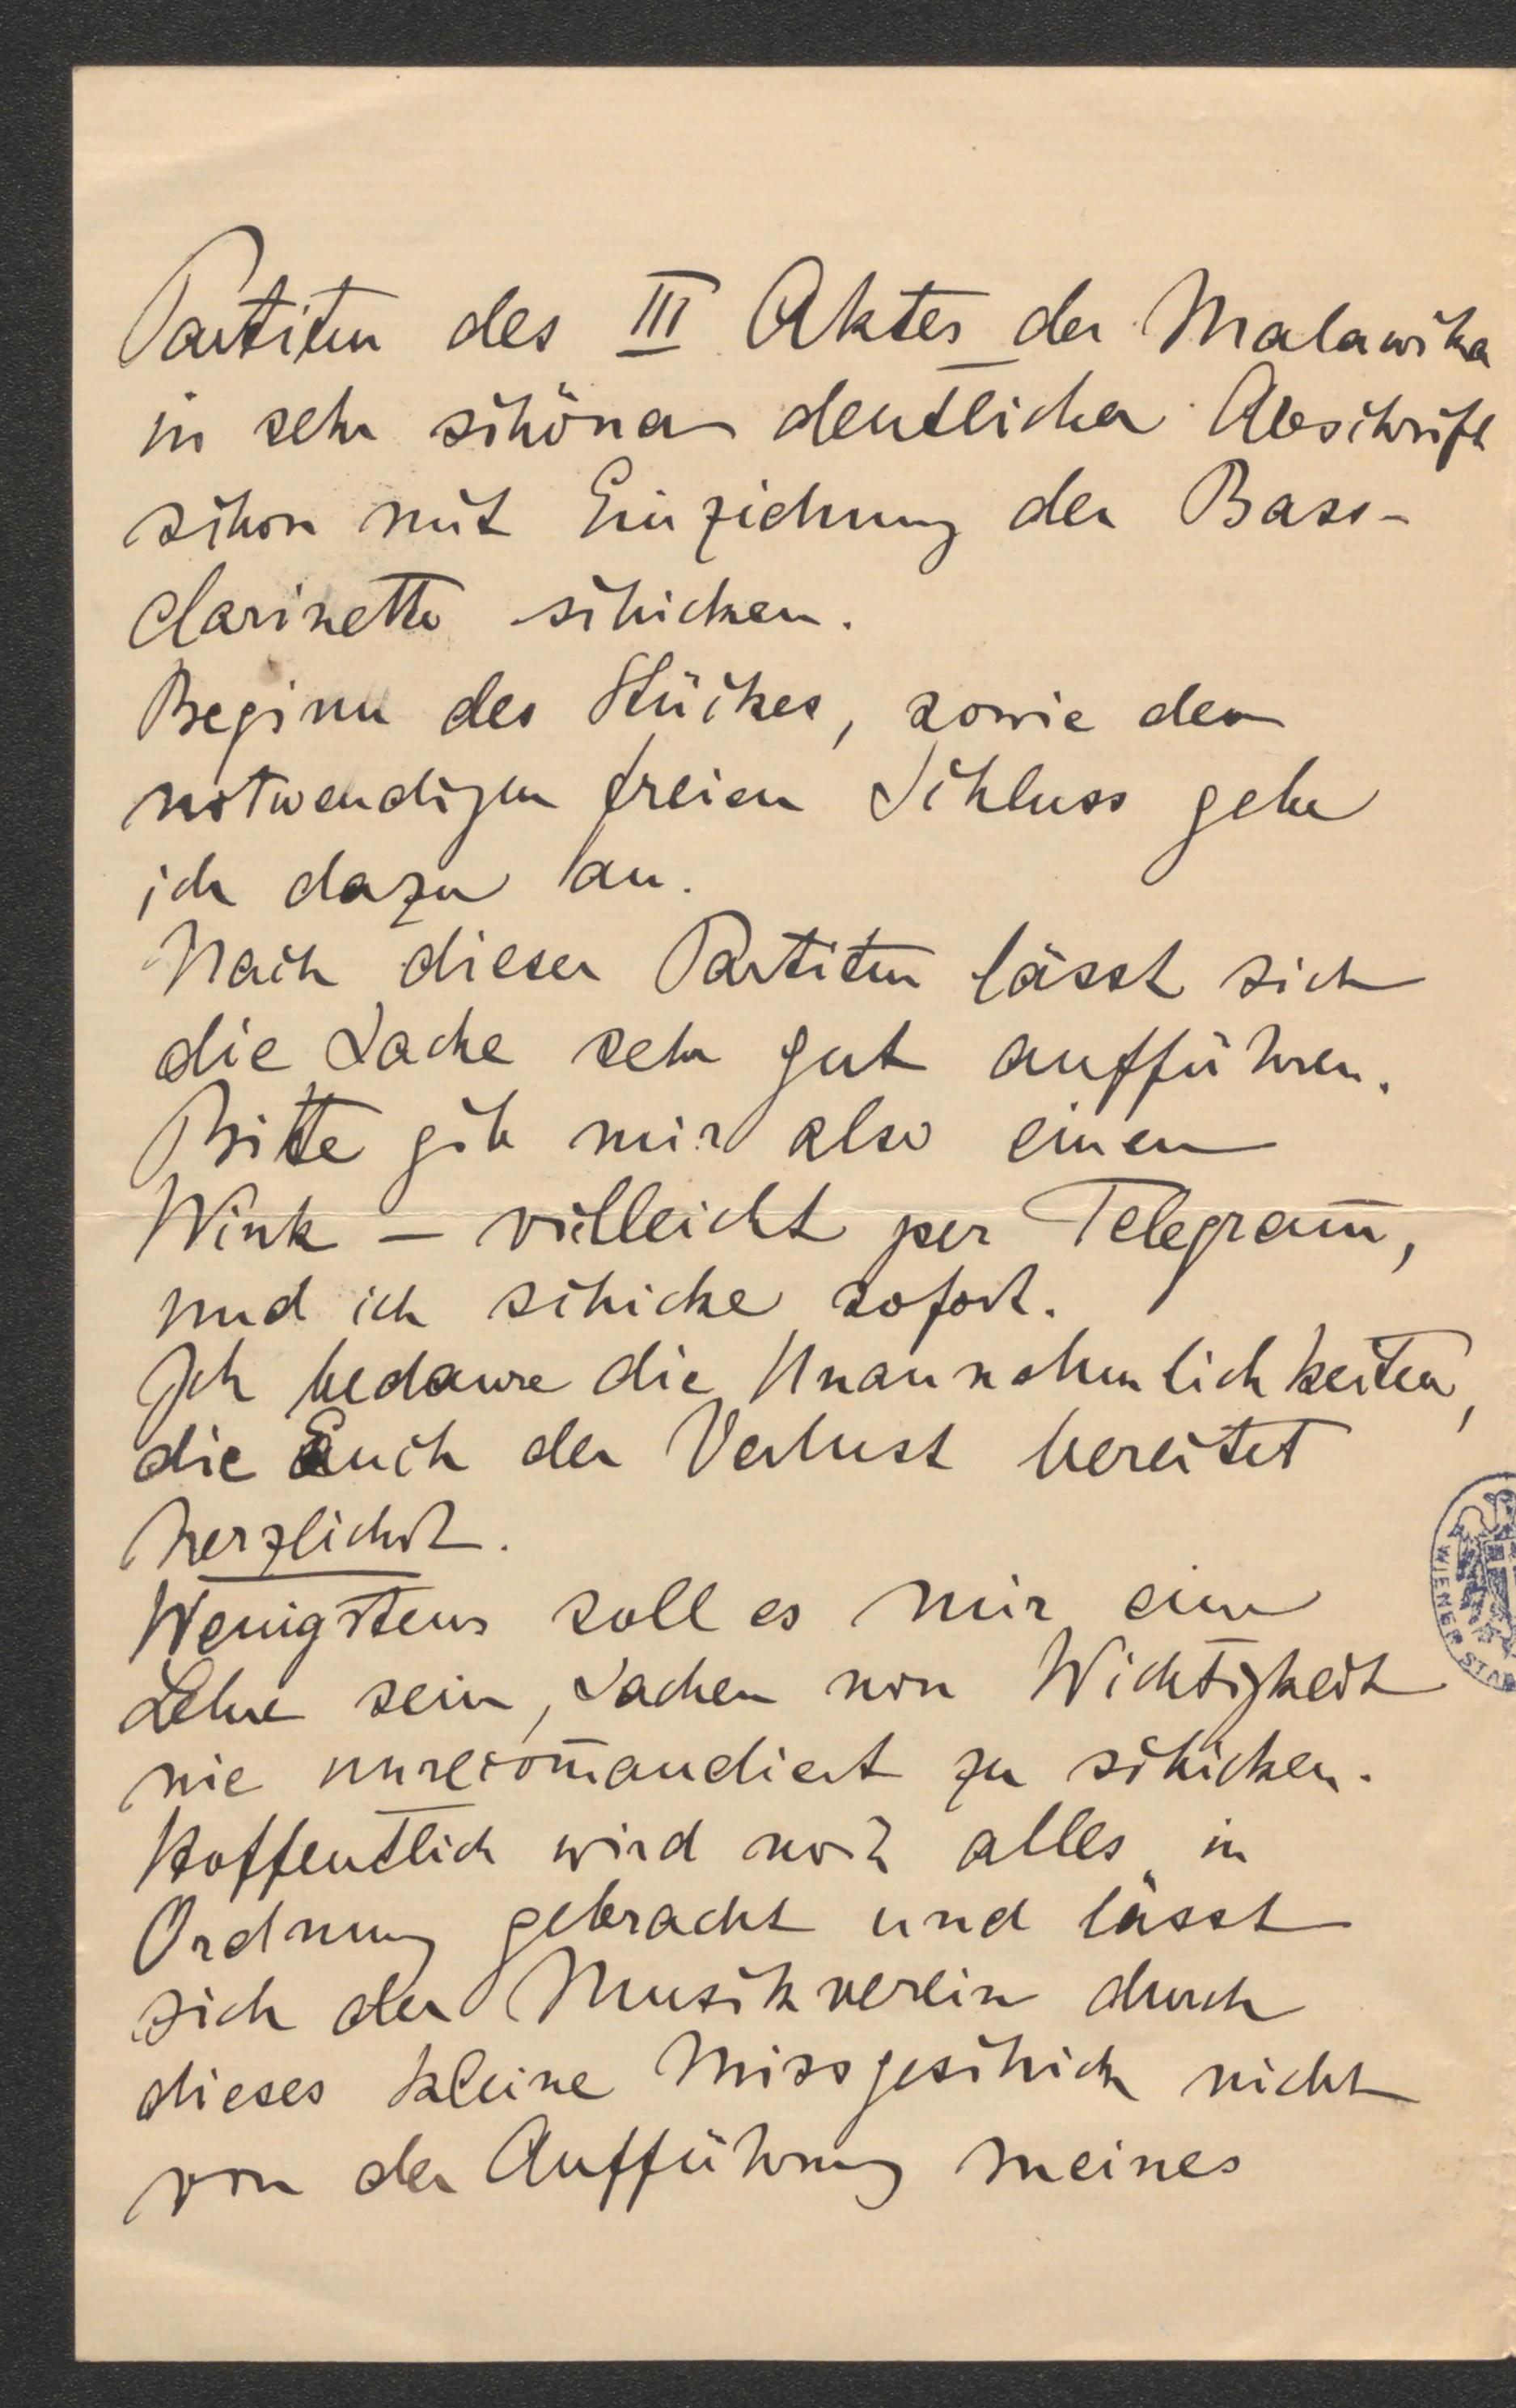 Partitur des III Aktes der Malawika
in sehr schöner deutlicher Abschrift
schon mit Einziehung der Bass-
clarinette schicken.
Beginn des Stückes, sowie den
notwendigen freien Schluss gebe
ich dazu an.
Nach dieser Partitur lässt sich
die Sache sehr gut aufführen.
Bitte gib mir also einen
Wink – vielleicht per Telegram̅,
und ich schicke sofort.
Ich bedaure die Unannehmlichkeiten,
die Euch der Verlust bereitet
herzlichst.
Wenigstens soll es mir eine
Lehre sein, Sachen von Wichtigkeit
nie unrecom̅andiert zu schicken.
Hoffentlich wird noch alles in
Ordnung gebracht und lässt
sich der Musikverein durch
dieses kleine Missgeschick nicht
von der Aufführung meines
WIENER STA